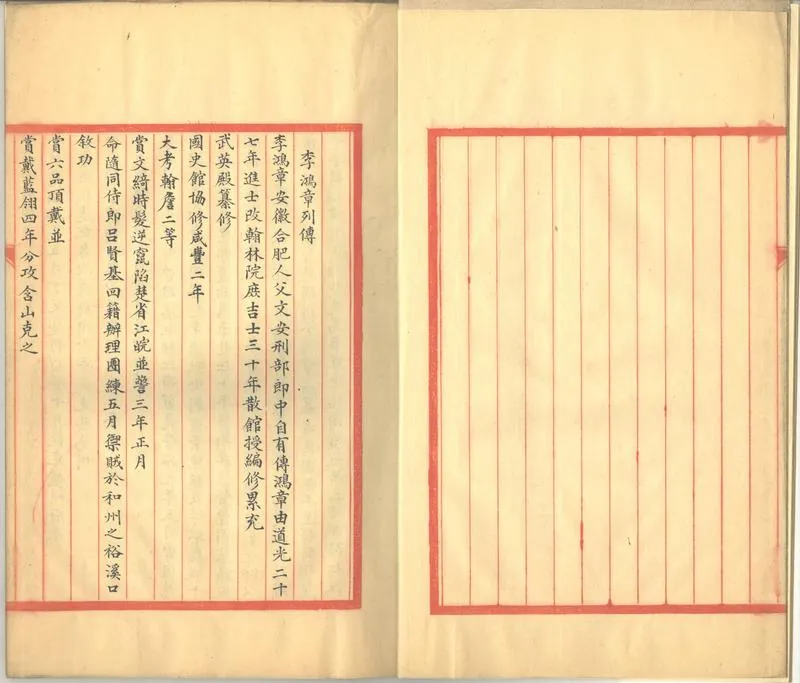 李鴻章列傳
李鴻章安徽合肥人父文安刑部郎中自有傳鴻章由道光二十
七年進士改翰林院庶吉士三十年散館授編修累充
武英殿纂修
國史館協修咸豐二年
大考翰詹二等
賞文綺時髮逆竄陷楚省江皖並警三年正月
命隨同侍郎呂賢基回籍辦理團練五月禦賊於和州之裕溪口
敘功
賞六品頂戴並
賞戴藍翎四年分攻含山克之